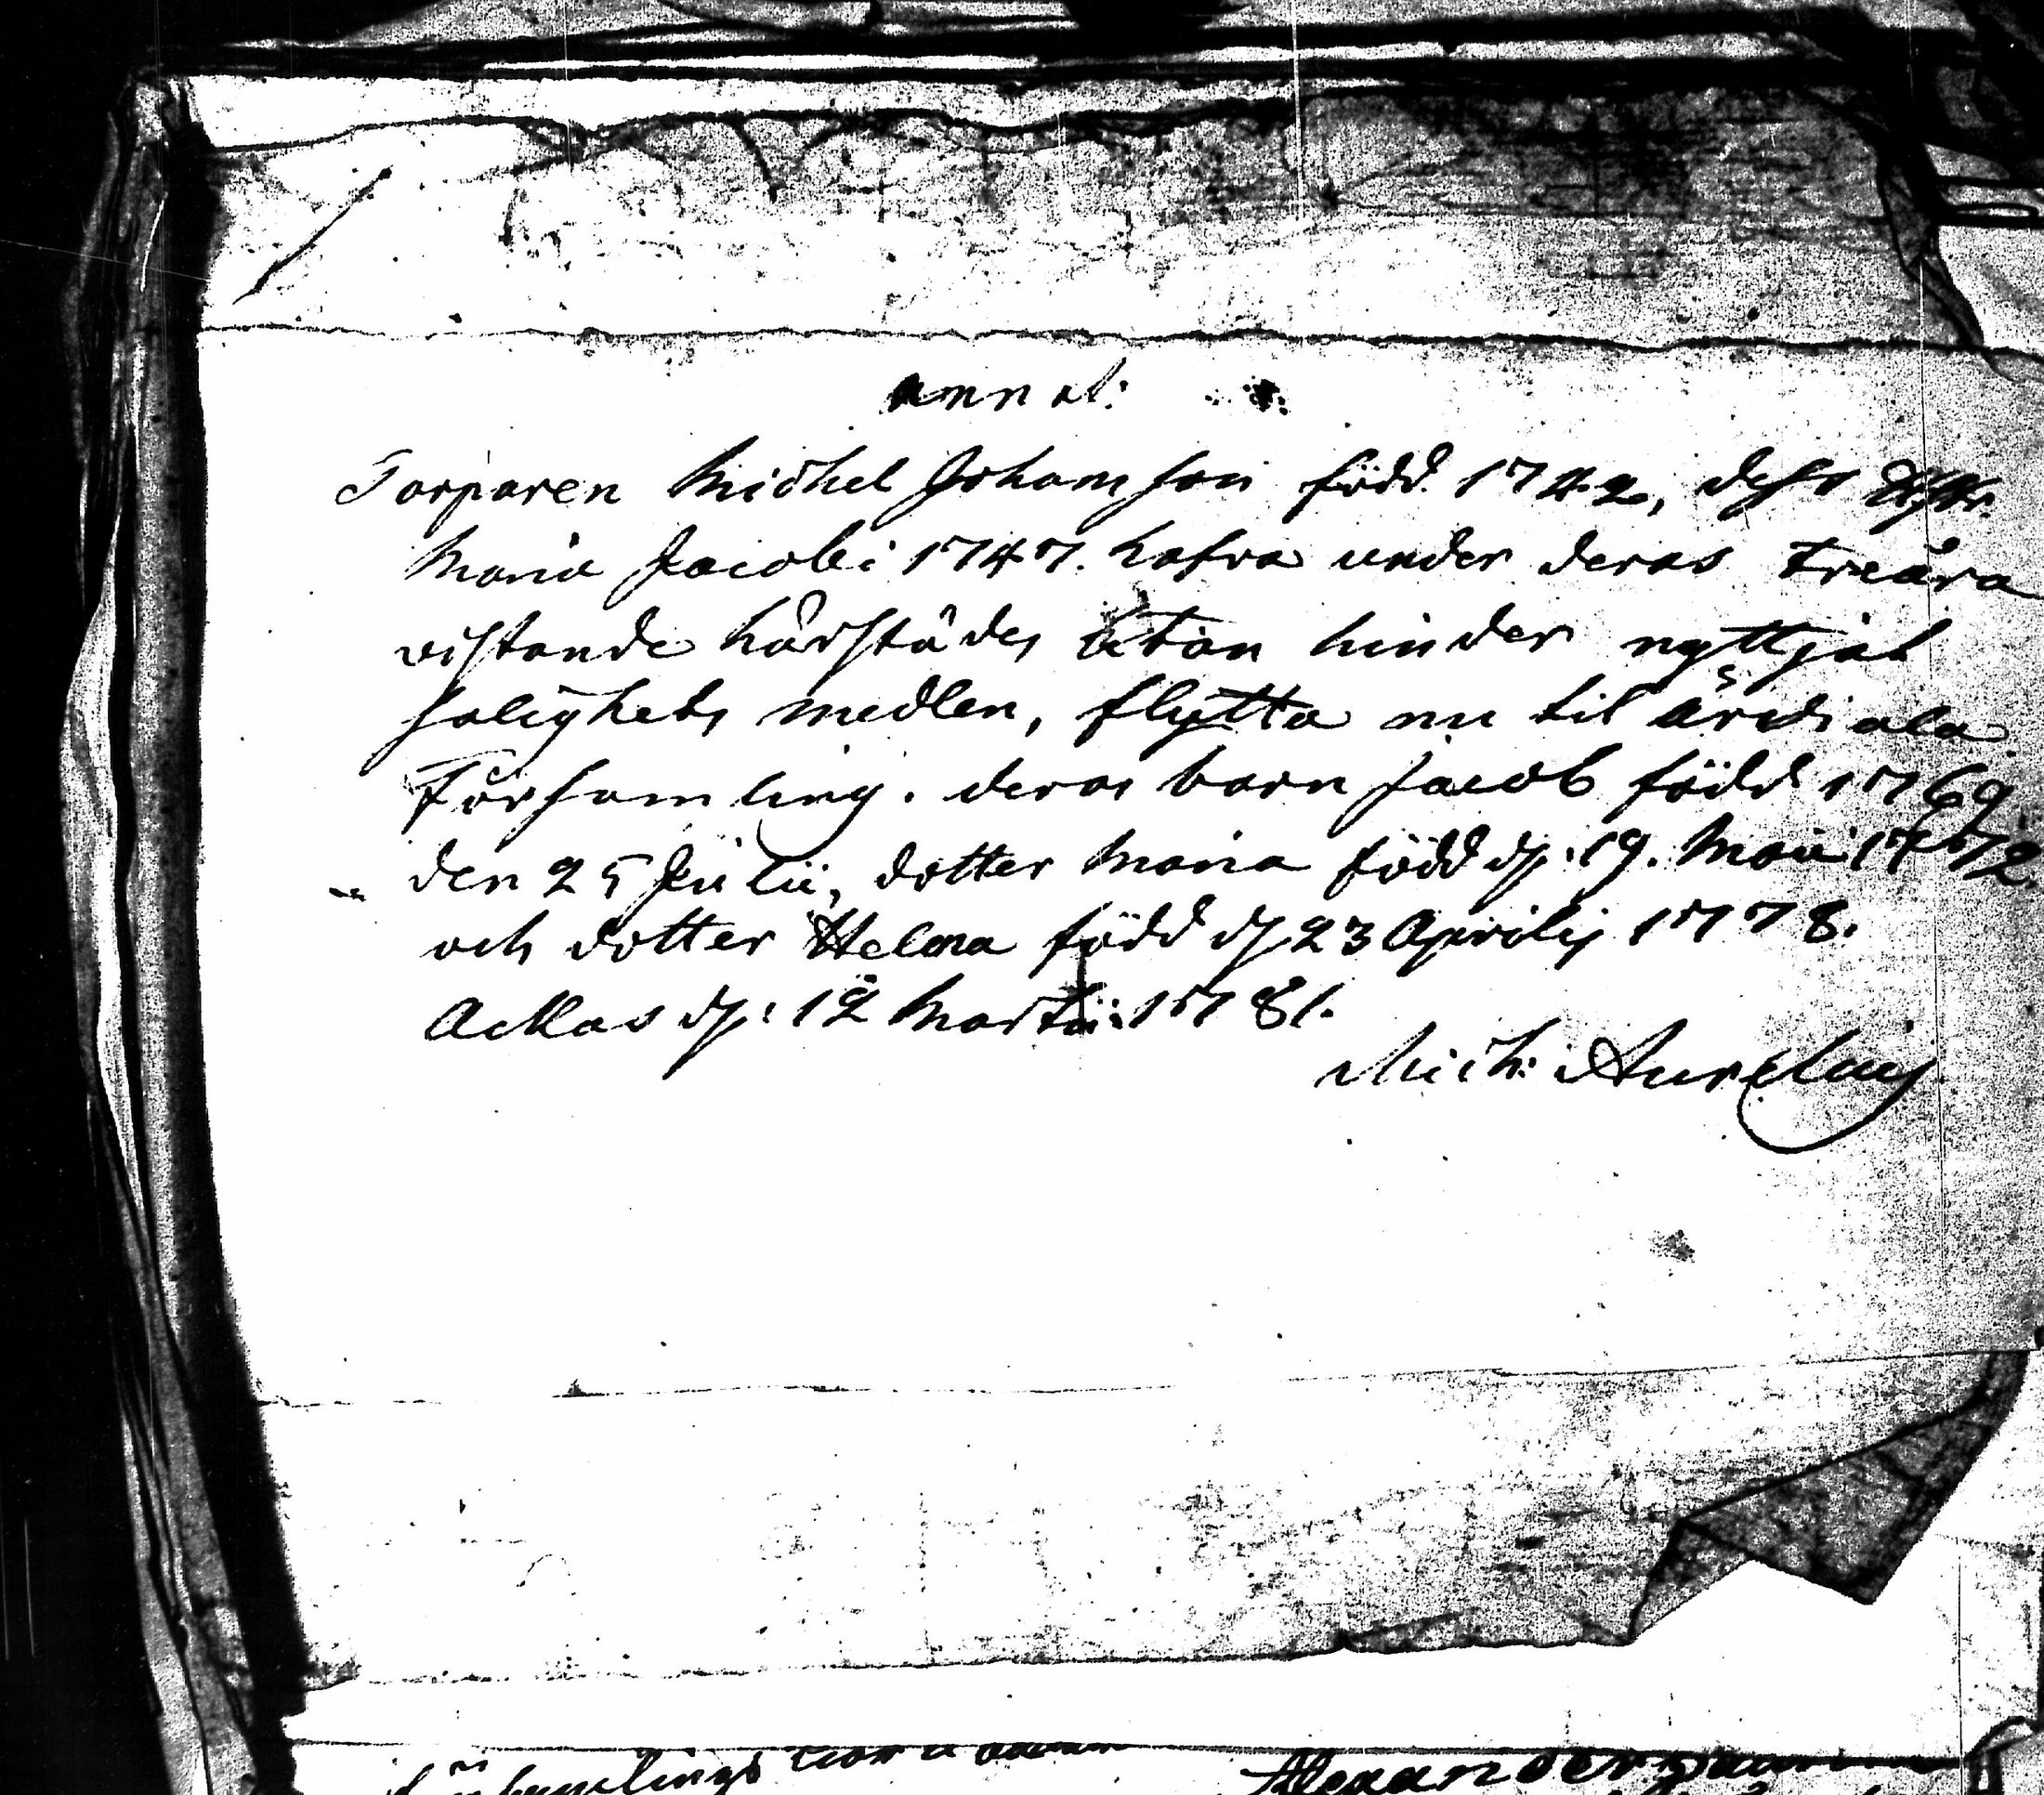 annat:
Torparen Michel Johansson född 1742, dess
Maria Jacobi 1747. hafva under deras treåra
vistande härstädes utan hinder nyttjat
salighets medlen, flytta nu til
Församling. deras barn Jacob född 1769
den 25 Julii, dotter Maria född d: 19. Maii 1772.
och dotter Helena född d 23 Aprilis 1778.
Ackas d: 12 Martii: 1781.
Mich: Aurelius